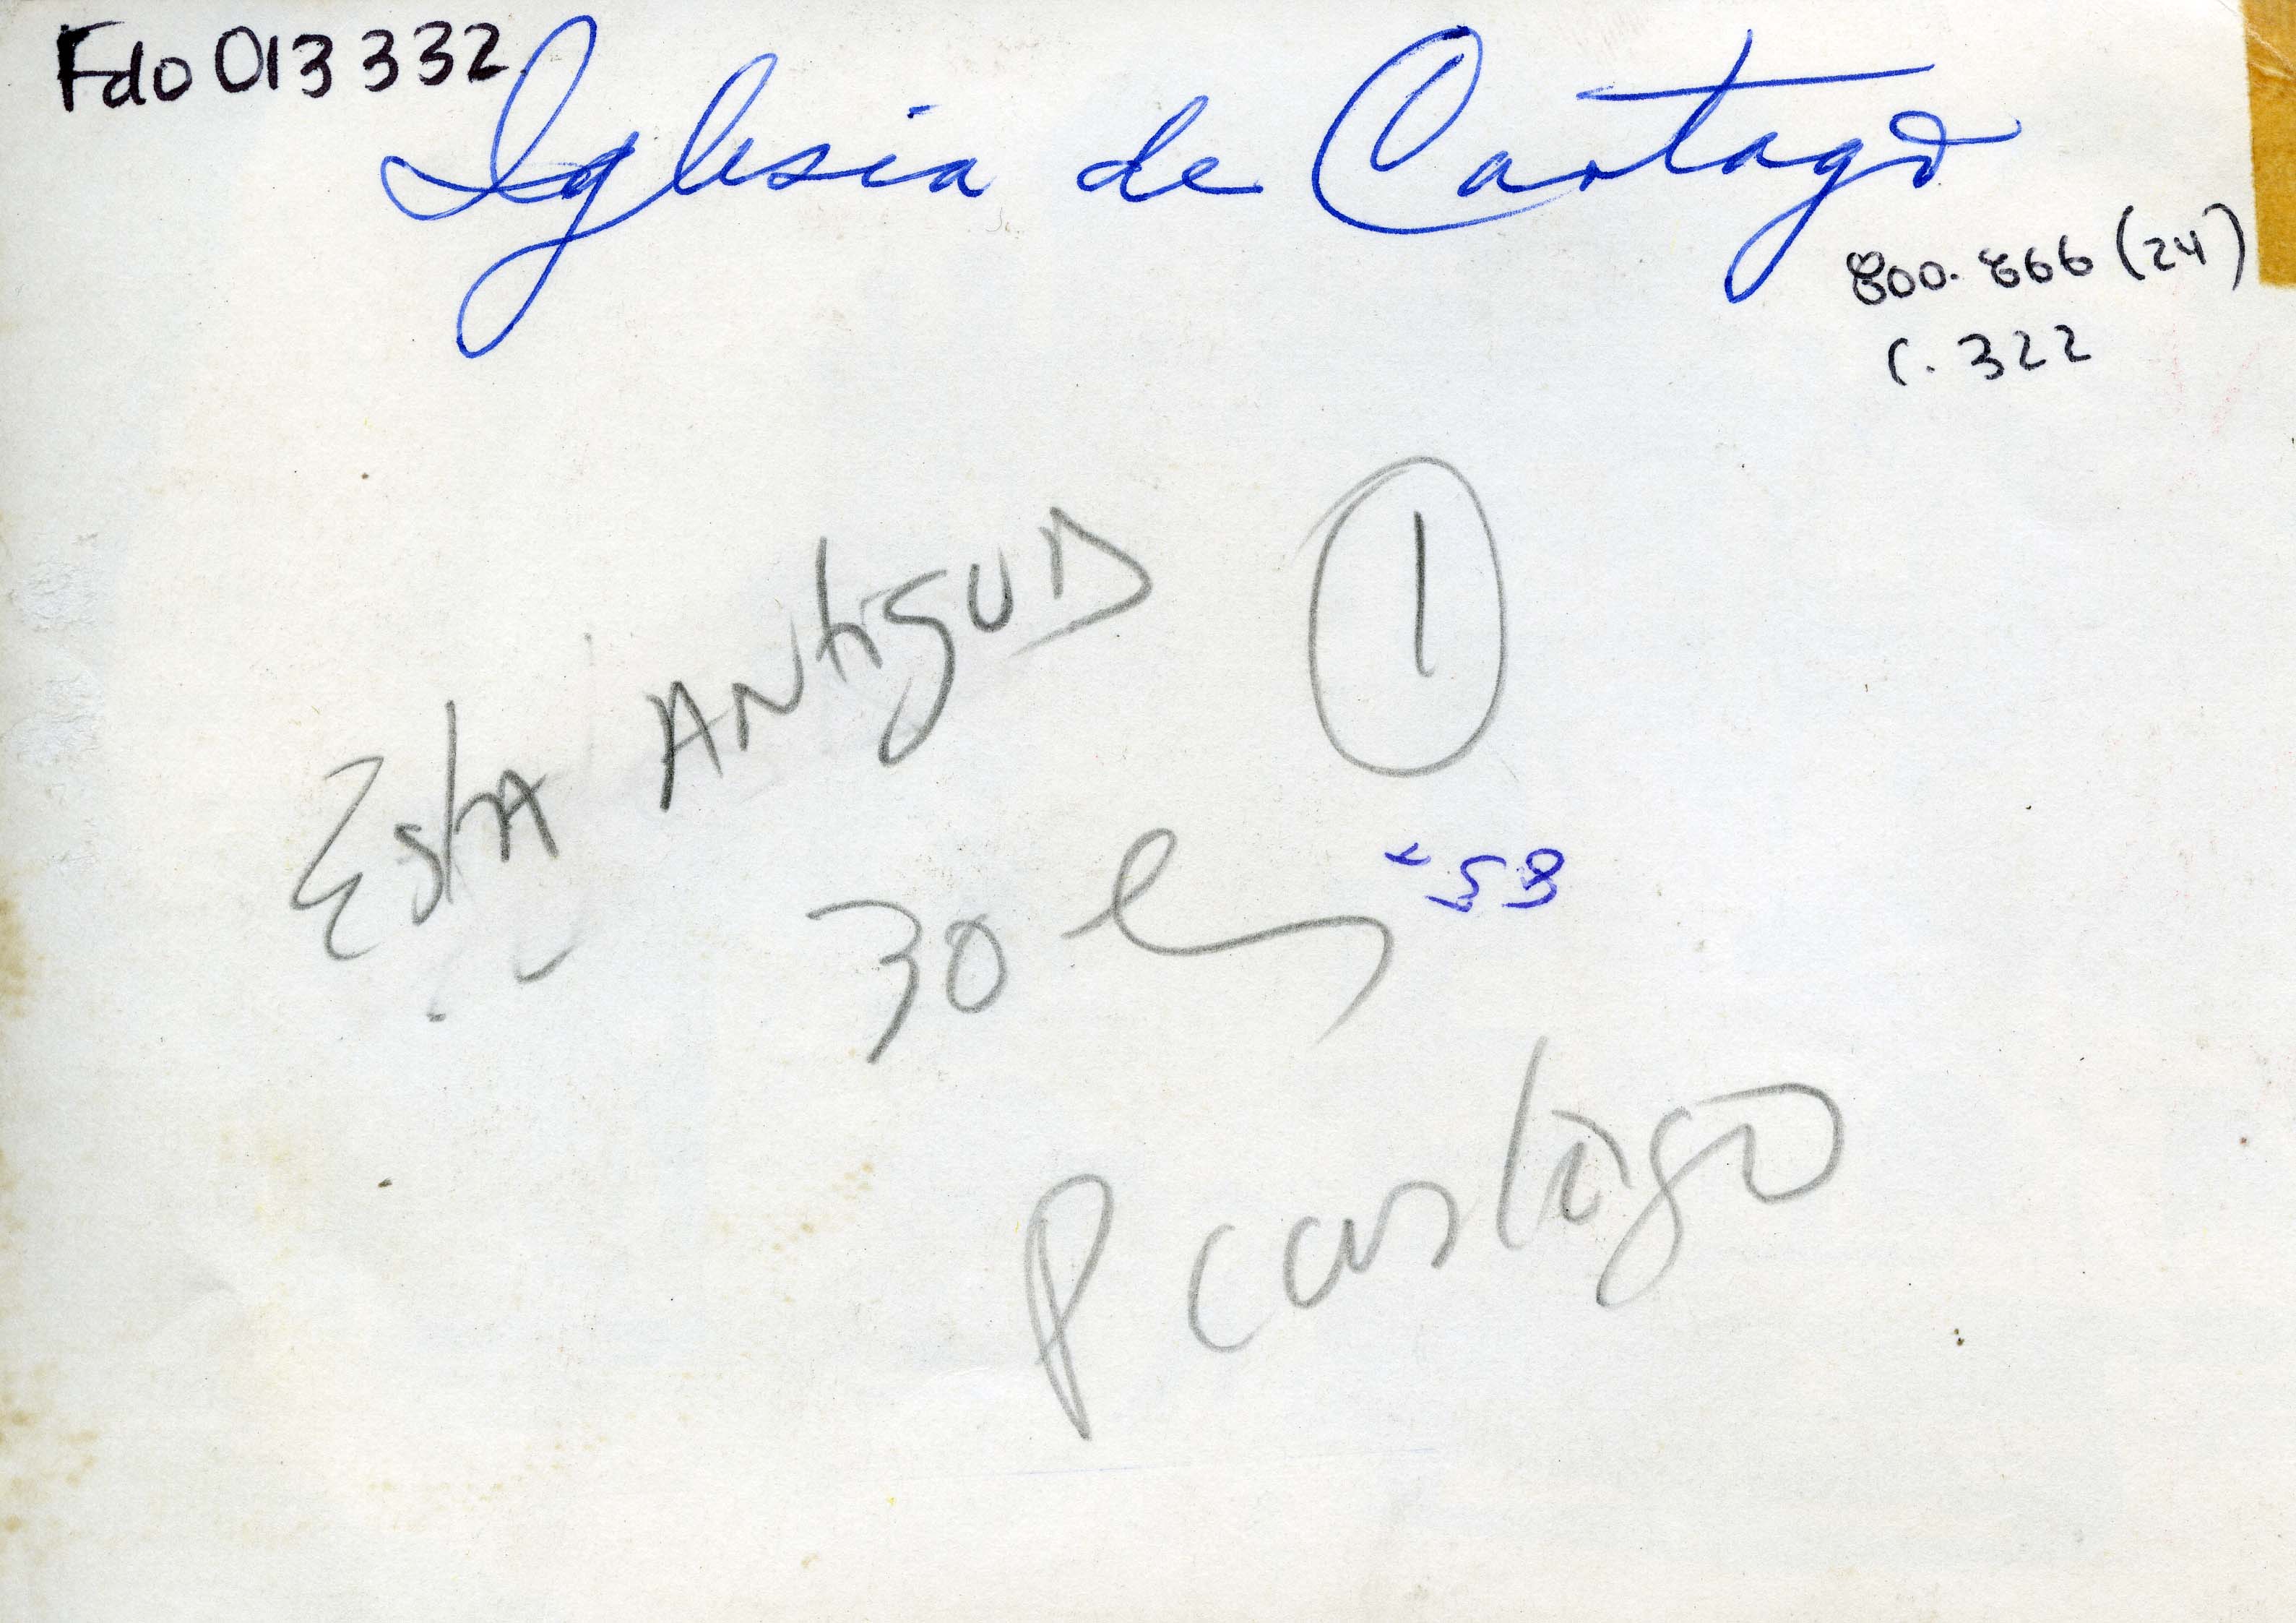 Fdo 013332
Iglesia de Cartago
800.866 (24)
C. 322
Esta Antigua
1
30
P Cartago